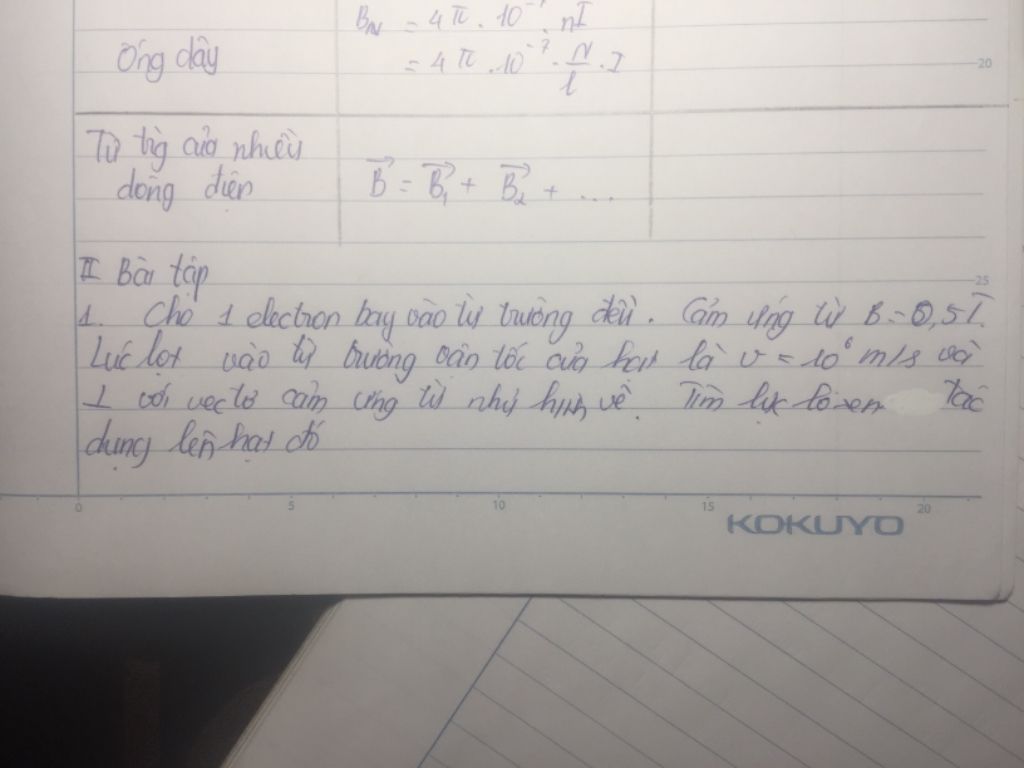 B_N = 4π . 10⁻⁷ . nI
Ống dây
= 4π . 10⁻⁷ . N/l . I
20
Từ trg của nhiều
dòng điện
B⃗ = B⃗₁ + B⃗₂ + ...
II Bài tập
25
1. Cho 1 electron bay vào từ trường đều. Cảm ứng từ B = 0,5T.
Lúc lọt vào từ trường vận tốc của hạt là v = 10⁶ m/s và
⊥ với vectơ cảm ứng từ như hình vẽ. Tìm lực lorenxơ tác
dụng lên hạt đó
0 5 10 15 20
KOKUYO